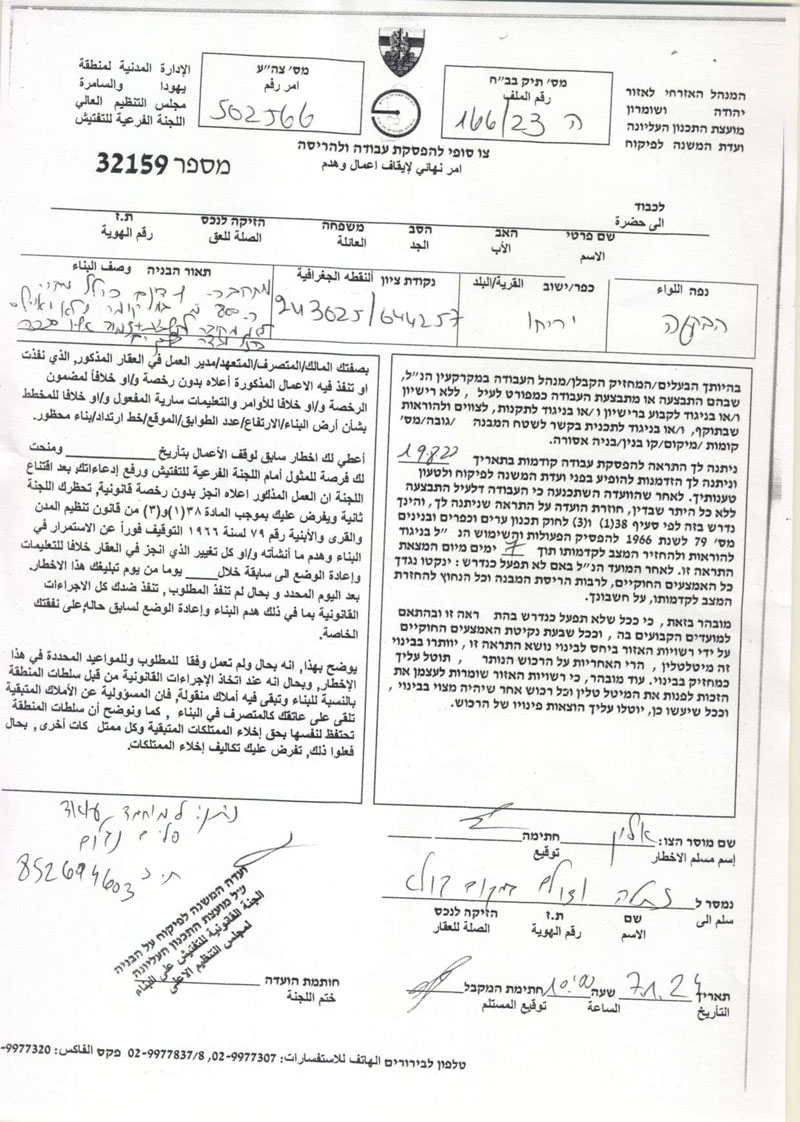 המנהל האזרחי לאזור
יהודה ושומרון
מועצת התכנון העליונה
ועדת המשנה לפיקוח
מס' תיק בב"ח
رقم الملف
ה 166/23
מס' צה"ע
امر رقم
502566
الإدارة المدنية لمنطقة
يهودا والسامرة
مجلس التنظيم العالي
اللجنة الفرعية للتفتيش
צו סופי להפסקת עבודה ולהריסה
امر نهائي لإيقاف اعمال وهدم
מספר 32159
לכבוד
الى حضرة
שם פרטי האב הסב משפחה הזיקה לנכס ת.ז
الاسم الأب الجد العائلة الصلة للعق رقم الهوية
נפה اللواء
הבקעה
כפר/ישוב القرية/البلد
יריחו
נקודת ציון النقطه الجغرافية
243625/644257
תאור הבניה وصف البناء
בהיותך הבעלים/המחזיק הקבלן/מנהל העבודה במקרקעין הנ"ל,
שבהם התבצעה או מתבצעת העבודה כמפורט לעיל , ללא רישיון
ו/או בניגוד לקבוע ברישיון ו/או בניגוד לתקנות, לצווים ולהוראות
שבתוקף, ו/או בניגוד לתכנית בקשר לשטח המבנה /גובה/מס'
קומות /מיקום/קו בנין/בניה אסורה.
ניתנה לך התראה להפסקת עבודה קודמות בתאריך
וניתנה לך הזדמנות להופיע בפני ועדת המשנה לפיקוח ולטעון
טענותיך. לאחר שהוועדה השתכנעה כי העבודה דלעיל התבצעה
ללא כל היתר שבדין, חוזרת הועדה על התראה שניתנה לך, והינך
נדרש בזה לפי סעיף 38(1) ו(3) לחוק תכנון ערים וכפרים ובנינים
מס' 79 לשנת 1966 להפסיק הפעולות והשימוש הנ "ל בניגוד
להוראות ולהחזיר המצב לקדמותו תוך 7 ימים מיום המצאת
התראה זו. לאחר המועד הנ"ל באם לא תפעל כנדרש : ינקטו נגדך
כל האמצעים החוקיים, לרבות הריסת המבנה וכל הנחוץ להחזרת
המצב לקדמותו, על חשבונך.
מובהר בזאת, כי ככל שלא תפעל כנדרש בהת ראה זו ובהתאם
למועדים הקבועים בה , וככל שבעת נקיטת האמצעים החוקיים
על ידי רשויות האזור ביחס לבינוי נושא התראה זו , יוותרו בבינוי
זה מיטלטלין , הרי האחריות על הרכוש הנותר , תוטל עליך
כמחזיק בבינוי. עוד מובהר, כי רשויות האזור שומרות לעצמן את
הזכות לפנות את המיטל טלין וכל רכוש אחר שיהיה מצוי בבינוי ,
וככל שיעשו כן, יוטלו עליך הוצאות פינויו של הרכוש.
بصفتك المالك/المتصرف/المتعهد/مدير العمل في العقار المذكور, الذي نفذت
او تنفذ فيه الاعمال المذكورة أعلاه بدون رخصة و/او خلافاً لمضمون
الرخصة و/او خلافا للأوامر والتعليمات سارية المفعول و/او خلافا للمخطط
بشأن أرض البناء/الارتفاع/عدد الطوابق/الموقع/خط ارتداد/بناء محظور.
أعطي لك اخطار سابق لوقف الأعمال بتأريخ ومنحت
لك فرصة للمثول أمام اللجنة الفرعية للتفتيش ورفع إدعاءاتك, بعد اقتناع
اللجنة ان العمل المذكور اعلاه انجز بدون رخصة قانونية, تحظرك اللجنة
ثانية ويفرض عليك بموجب المادة ٣٨(١)و(٣) من قانون تنظيم المدن
والقرى والأبنية رقم ٧٩ لسنة ١٩٦٦ التوقيف فوراً عن الاستمرار في
البناء وهدم ما أنشأته و/او كل تغيير الذي انجز في العقار خلافا للتعليمات
وإعادة الوضع الى سابقة خلال يوما من يوم تبليغك هذا الاخطار.
بعد اليوم المحدد و بحال لم تنفذ المطلوب , تنفذ ضدك كل الاجراءات
القانونية بما في ذلك هدم البناء وإعادة الوضع لسابق حاله,على نفقتك
الخاصة.
يوضح بهذا, انه بحال ولم تعمل وفقا للمطلوب وللمواعيد المحددة في هذا
الإخطار, وبحال انه عند اتخاذ الإجراءات القانونية من قبل سلطات المنطقة
بالنسبة للبناء وتبقى فيه أملاك منقولة, فان المسؤولية عن الأملاك المتبقية
تلقى على عاتقك كالمتصرف في البناء , كما ونوضح أن سلطات المنطقة
تحتفظ لنفسها بحق إخلاء الممتلكات المتبقية وكل ممتل كات أخرى, بحال
فعلوا ذلك, تفرض عليك تكاليف إخلاء الممتلكات.
שם מוסר הצו: חתימה
إسم مسلم الاخطار توقيع
נמסר ל
سلم الى
שם ת.ז הזיקה לנכס
الاسم رقم الهوية الصلة للعقار
תאריך 7.1.24 שעה 10:00 חתימת המקבל
التأريخ الساعة توقيع المستلم
ת.ז 852694603
ועדה המשנה לפיקוח על הבניה
על מועצת התכנון העליונה
חותמת הועדה
ختم اللجنة
טלפון לבירורים الهاتف للاستفسارات: 02-9977307, 02-9977837/8 פקס الفاكس: 9977320-